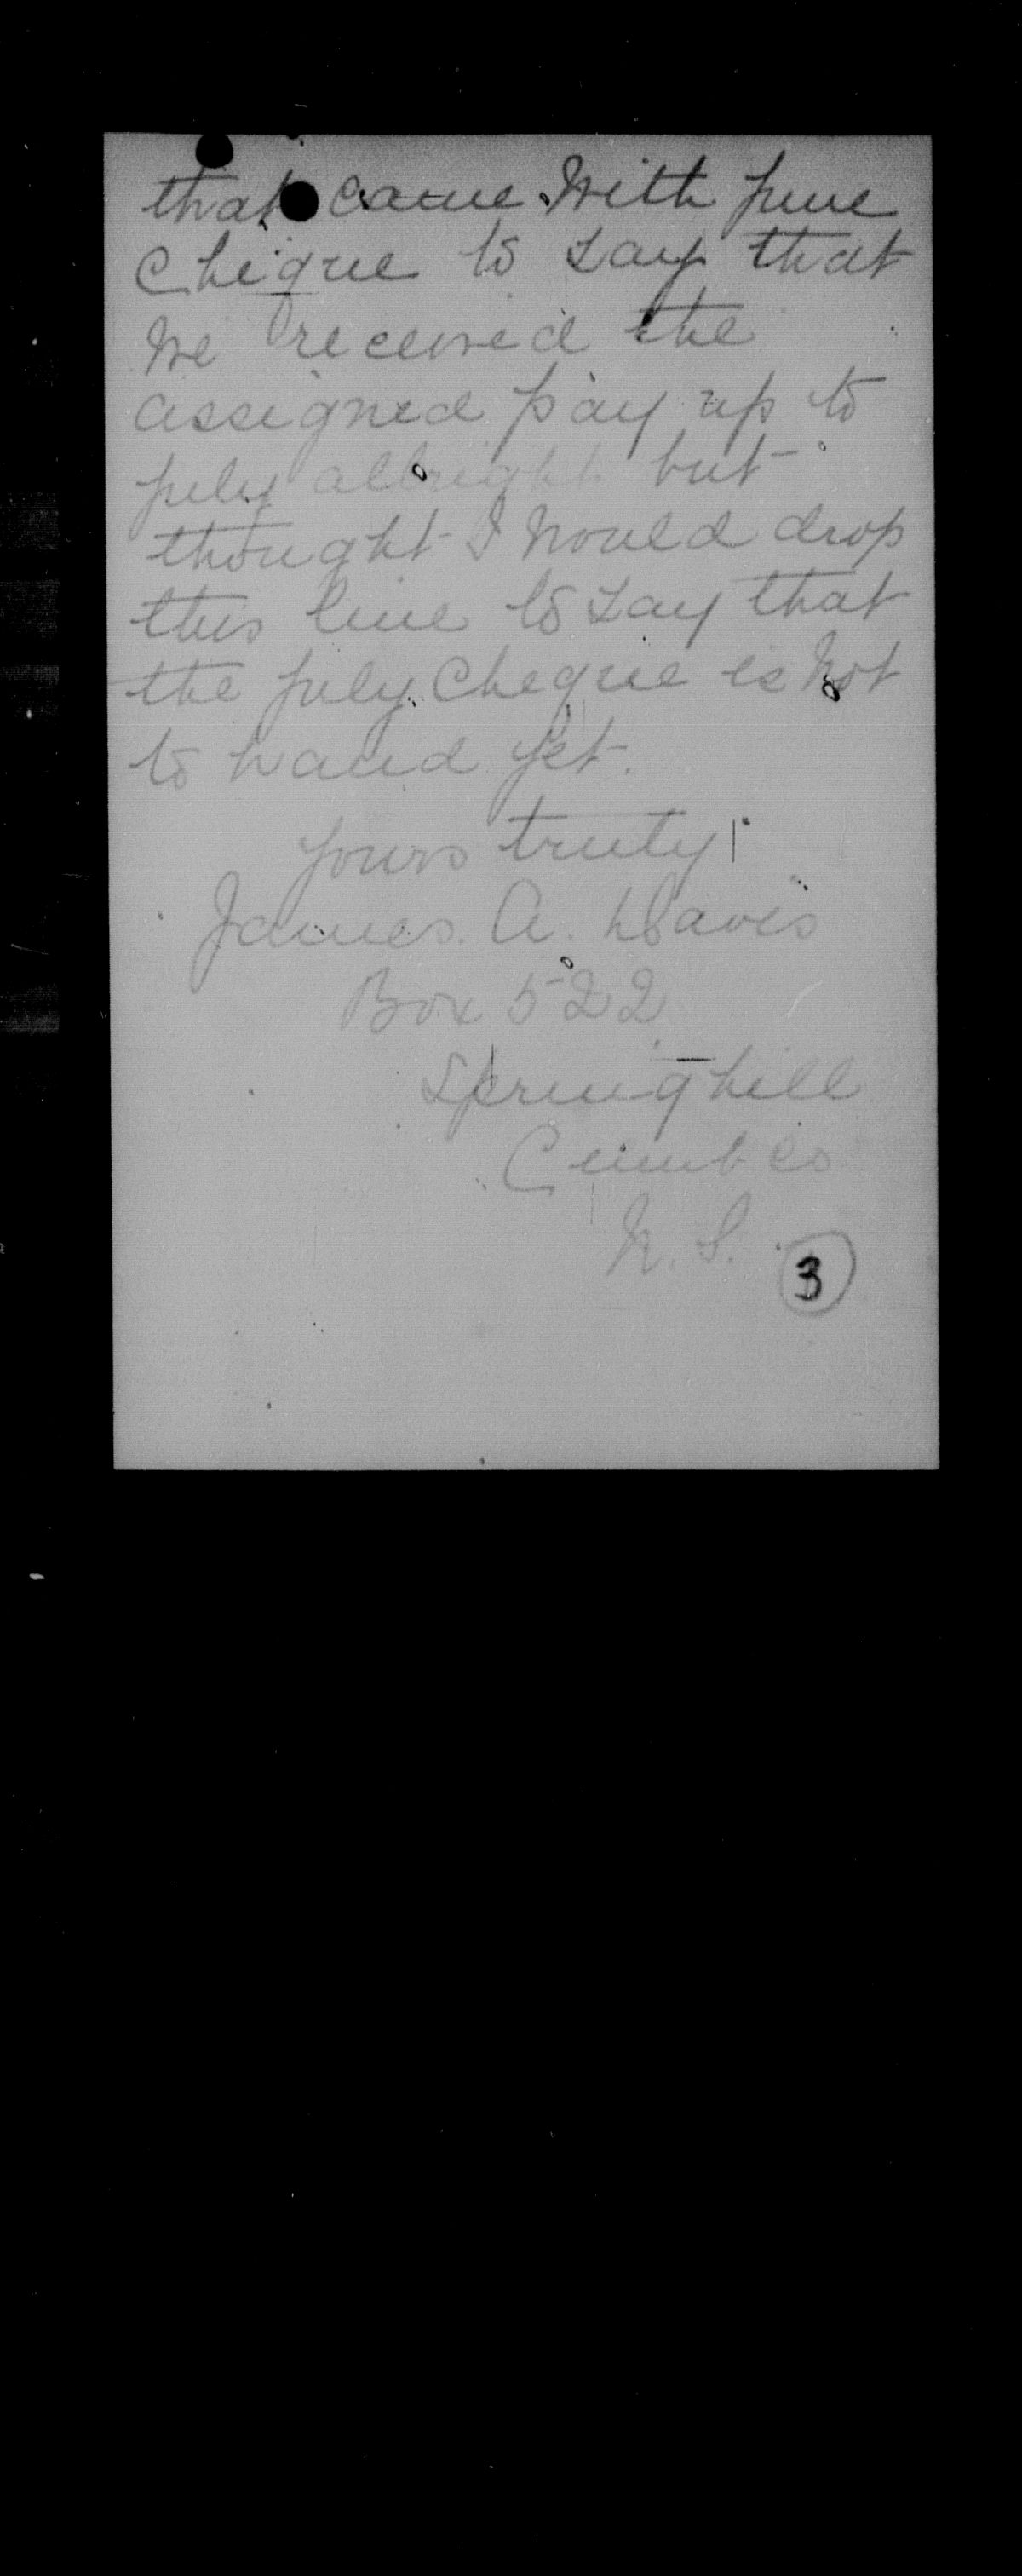 that came with june
Cheque to say that
We received the
assigned pay up to
july allright but
thought I would drop
this line to say that
the july Cheque is Not
to hand yet.
yours truly
James. A. Davis
Box 522
Springhill
Cumb Co
N. S.
3